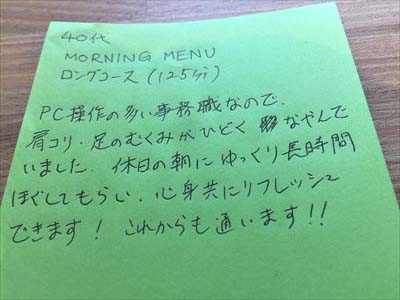 40代
MORNING MENU
ロングコース(125分)
PC操作の多い事務職なので、
肩コリ・足のむくみがひどく なやんで
いました。休日の朝にゆっくり長時間
ほぐしてもらい、心身共にリフレッシュ
できます! これからも通います!!